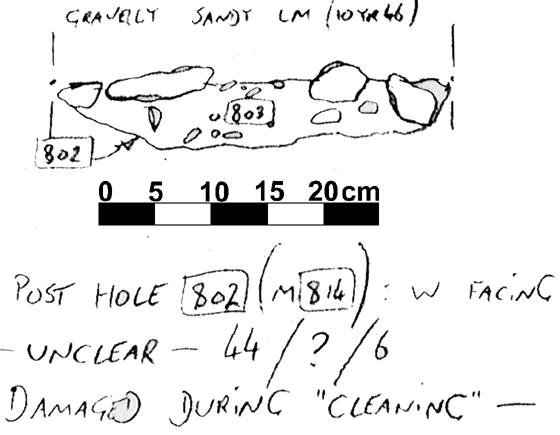 GRAVELLY SANDY LM (10YR46)
803
802
0 5 10 15 20 cm
POST HOLE 802 (M 814) : W FACING
- UNCLEAR - 44 / ? / 6
DAMAGED DURING "CLEANING" -